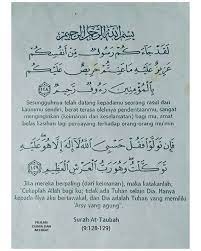 بسم الله الرحمن الرحيم
لَقَدْ جَاءَكُمْ رَسُولٌ مِنْ أَنْفُسِكُمْ
عَزِيزٌ عَلَيْهِ مَا عَنِتُّمْ حَرِيصٌ عَلَيْكُمْ
بِالْمُؤْمِنِينَ رَءُوفٌ رَحِيمٌ
Sesungguhnya telah datang kepadamu seorang rasul dari
kaummu sendiri, berat terasa olehnya penderitaanmu, sangat
menginginkan (keimanan dan keselamatan) bagi mu, amat
belas kasihan lagi penyayang terhadap orang-orang mu'min
فَإِنْ تَوَلَّوْا فَقُلْ حَسْبِيَ اللَّهُ لَا إِلَٰهَ إِلَّا هُوَ عَلَيْهِ
تَوَكَّلْتُ وَهُوَ رَبُّ الْعَرْشِ الْعَظِيمِ
Jika mereka berpaling (dari keimanan), maka katakanlah,
"Cukuplah Allah bagi ku; tidak ada Tuhan selain Dia. Hanya
kepada-Nya aku bertawakal, dan Dia adalah Tuhan yang memiliki
'Arsy yang agung".
Surah At-Taubah
(9:128-129)